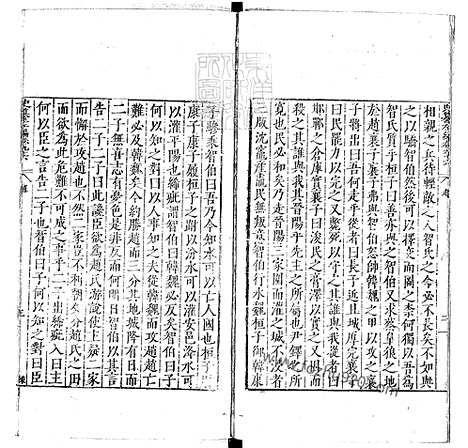 相親之兵待輕敵之人智氏之今必不長矣不如與
之以驕智伯然後可以擇交而圖之柰何獨以吾爲
智氏質乎桓子曰善與之一智伯又求蔡皋狼之地
於趙襄子襄子弗與智伯怒帥韓魏之甲以攻襄
子襄子將出曰何走乎從者曰長子近且城完襄子
曰民罷力以完之又斃死以守之其誰與我從者曰邯
鄲之倉庫實襄子曰浚民之
實之又因而殺之其誰與我其晉陽乎先主之所屬也尹鐸之所
寬也民必和矣乃走晉陽三
三版沈竈產鼃民無叛意智伯行水魏桓子御韓康
子驂乘智伯曰吾乃今知水可以亡人國也桓子
康子康子履桓子之跗以汾水可以灌安邑絳水可
以灌平陽也絺疵謂智伯曰韓魏必反矣智伯曰子
何以知之對曰以人事知之夫從韓魏而攻趙趙亡
難必及韓魏矣今約勝趙而三分其地城降有日而
二子無喜志有憂色是非反而何明日智伯以其言
告二子二子曰此讒臣欲爲趙氏游說使主疑二家
而懈於攻趙也不然二家豈不利朝夕分趙氏之田
而欲爲此危難不可成之事乎二子出絺疵入曰主
何以臣之言告二子也智伯曰子何以知之對曰臣